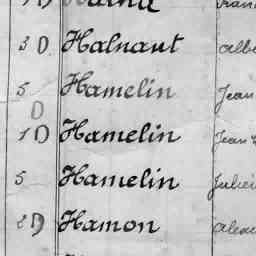 3 D Halnaut albe
5 Hamelin Jean
D
1 D Hamelin Jean
5 Hamelin Julie
2 D Hamon alex